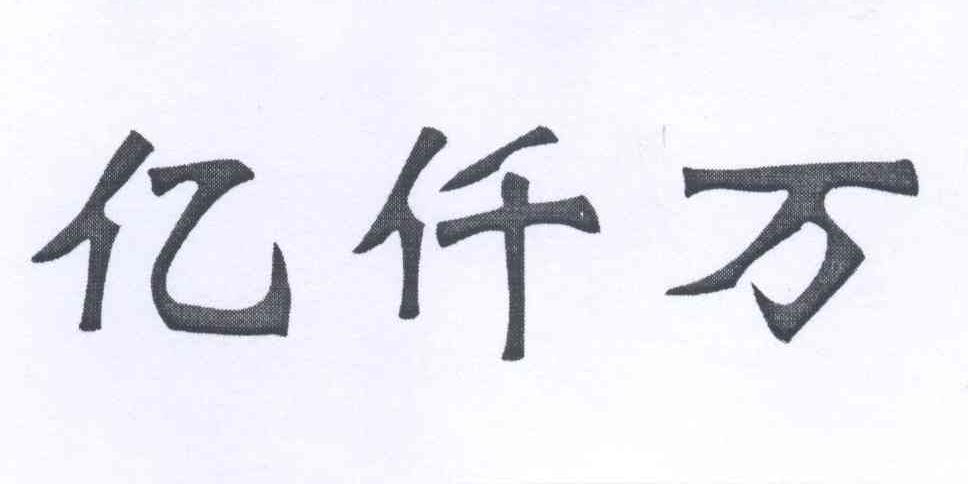 亿仟万